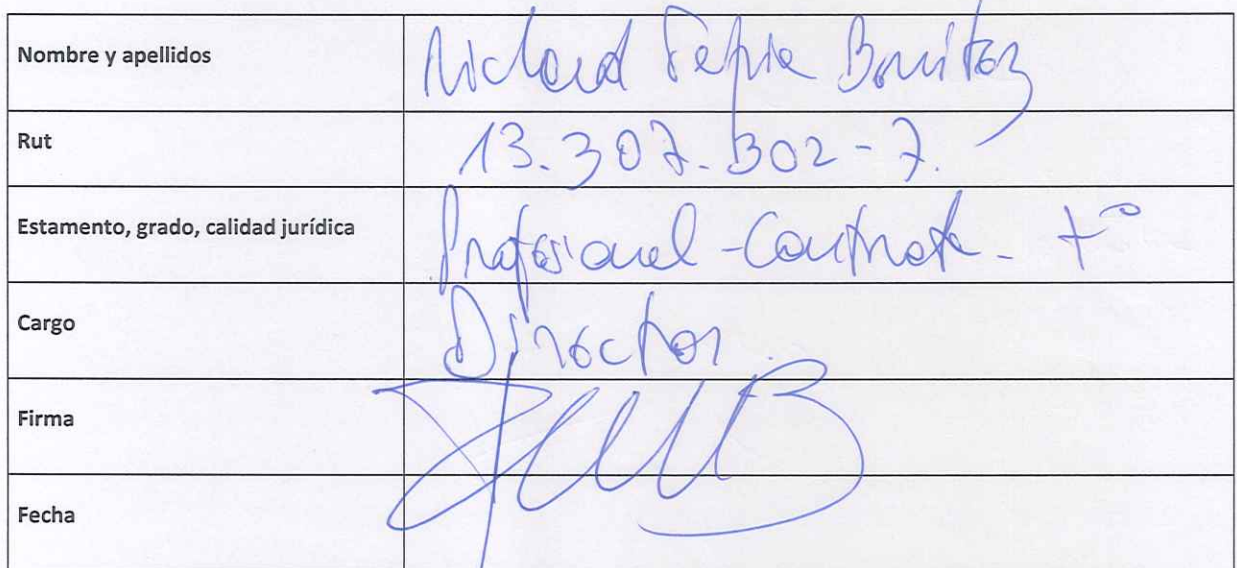 Nombre y apellidos Richard Tapia Benitez
Rut 13.307.302-7.
Estamento, grado, calidad jurídica Profesional - Contrata - 7°
Cargo Director.
Firma
Fecha